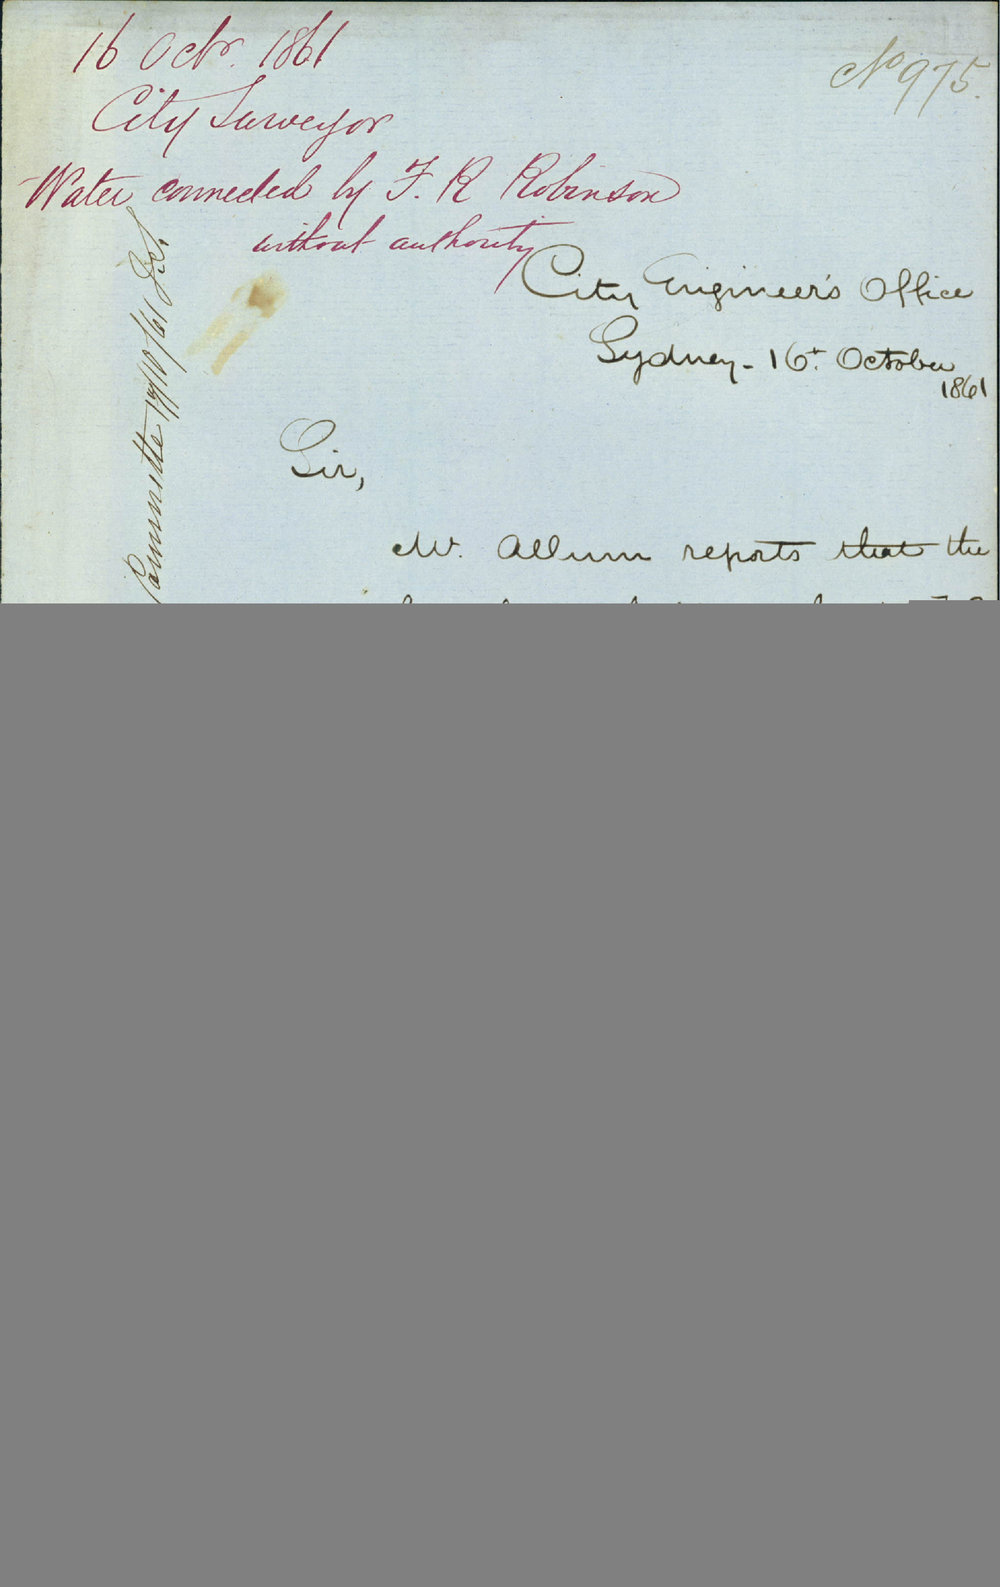 16 Octr. 1861
No 975.
City Surveyor
Water connected by F. R Robinson
without authority
City Engineer's Office
Sydney - 16t. October
1861
Sir,
Mr. Allum reports that the
Committee 17/10/61